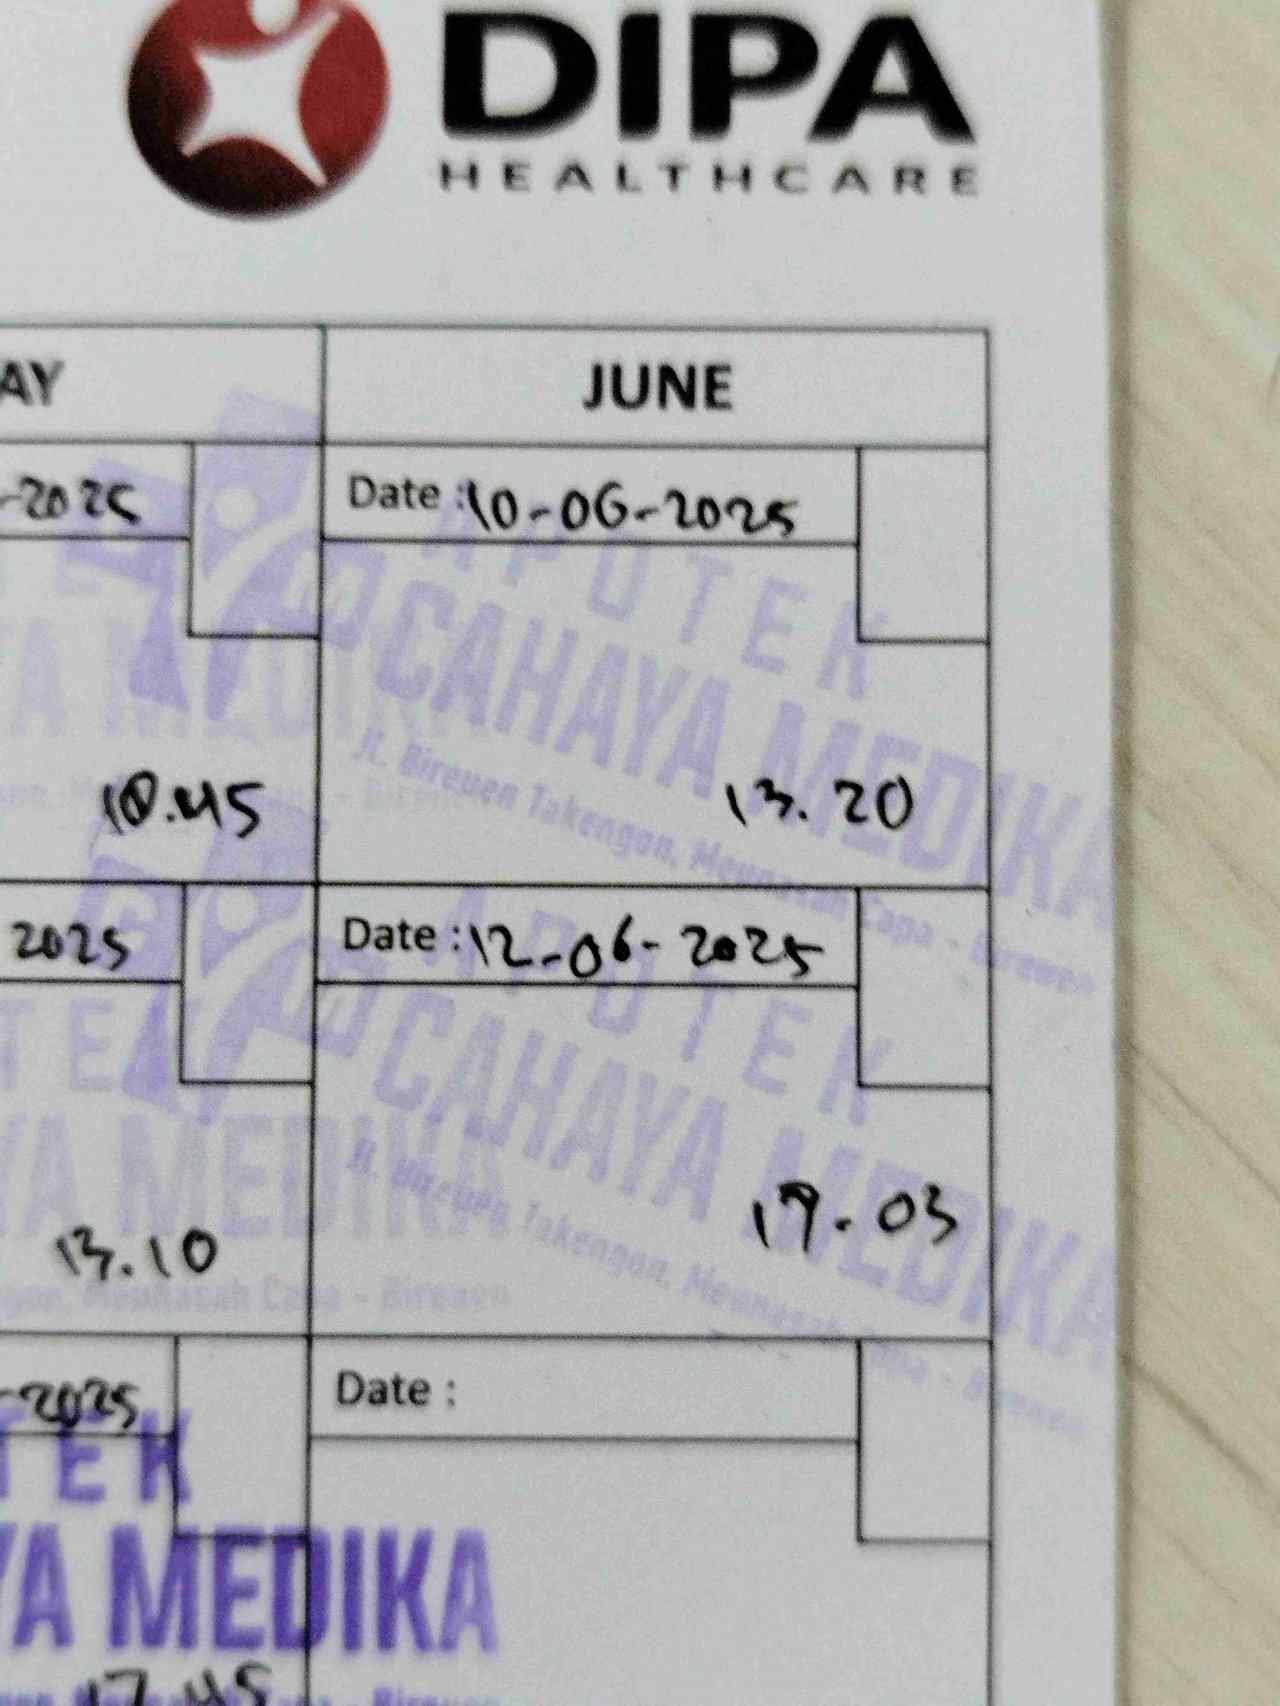 DIPA
HEALTHCARE
AY
JUNE
-2025
Date : 10-06-2025
APOTEK
CAHAYA MEDIKA
Jl. Bireuen Takengon, Meunasah Capa - Bireuen
YA MEDIKA
10.45
13.20
2025
Date : 12-06-2025
APOTEK
CAHAYA MEDIKA
Jl. Bireuen Takengon, Meunasah Capa - Bireuen
TEK
YA MEDIKA
13.10
19.03
Meunasah Capa - Bireuen
-2025
Date :
TEK
YA MEDIKA
17.45